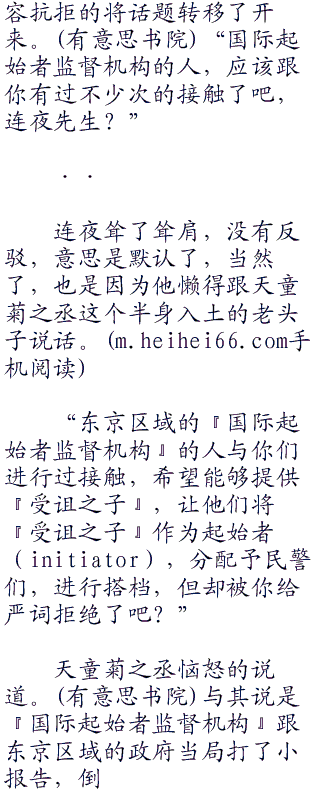 容抗拒的将话题转移了开
来。(有意思书院)“国际起
始者监督机构的人，应该跟
你有过不少次的接触了吧，
连夜先生？”
．．
连夜耸了耸肩，没有反
驳，意思是默认了，当然
了，也是因为他懒得跟天童
菊之丞这个半身入土的老头
子说话。(m.heihei66.com手
机阅读)
“东京区域的『国际起
始者监督机构』的人与你们
进行过接触，希望能够提供
『受诅之子』，让他们将
『受诅之子』作为起始者
（initiator），分配予民警
们，进行搭档，但却被你给
严词拒绝了吧？”
天童菊之丞恼怒的说
道。(有意思书院)与其说是
『国际起始者监督机构』跟
东京区域的政府当局打了小
报告，倒